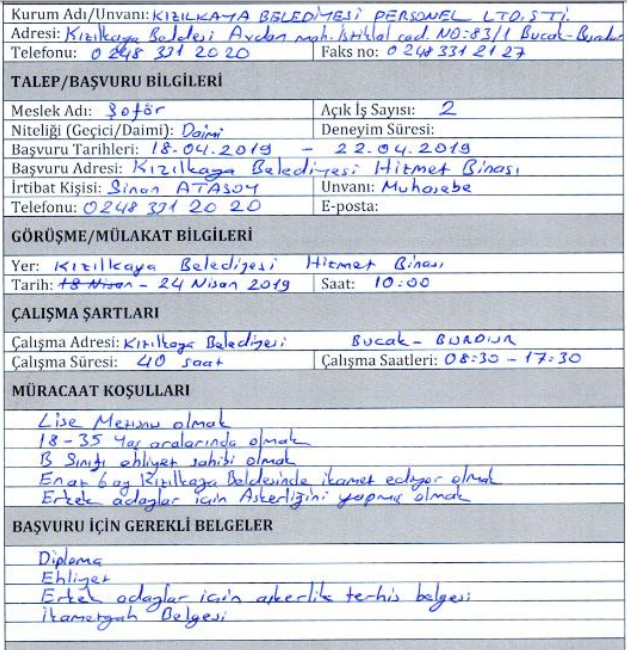 Kurum Adı/Unvanı: KIZILKAYA BELEDİYESİ PERSONEL LTD. ŞTİ.
Adresi: Kızılkaya Beldesi Avdan mah. İstiklal cad. NO: 83/1 Bucak-Burdur
Telefonu: 0 248 331 20 20 Faks no: 0 248 331 21 27
TALEP/BAŞVURU BİLGİLERİ
Meslek Adı: Şoför Açık İş Sayısı: 2
Niteliği (Geçici/Daimi): Daimi Deneyim Süresi:
Başvuru Tarihleri: 18.04.2019 - 22.04.2019
Başvuru Adresi: Kızılkaya Belediyesi Hizmet Binası
İrtibat Kişisi: Sinan ATASOY Unvanı: Muhasebe
Telefonu: 0248 331 20 20 E-posta:
GÖRÜŞME/MÜLAKAT BİLGİLERİ
Yer: Kızılkaya Belediyesi Hizmet Binası
Tarih: 18 Nisan - 24 Nisan 2019 Saat: 10:00
ÇALIŞMA ŞARTLARI
Çalışma Adresi: Kızılkaya Belediyesi Bucak - BURDUR
Çalışma Süresi: 40 saat Çalışma Saatleri: 08:30 - 17:30
MÜRACAAT KOŞULLARI
Lise Mezunu olmak
18-35 Yaş aralarında olmak
B Sınıfı ehliyet sahibi olmak
En az 6 ay Kızılkaya Beldesinde ikamet ediyor olmak
Erkek adaylar için Askerliğini yapmış olmak
BAŞVURU İÇİN GEREKLİ BELGELER
Diploma
Ehliyet
Erkek adaylar için askerlik terhis belgesi
İkametgah Belgesi